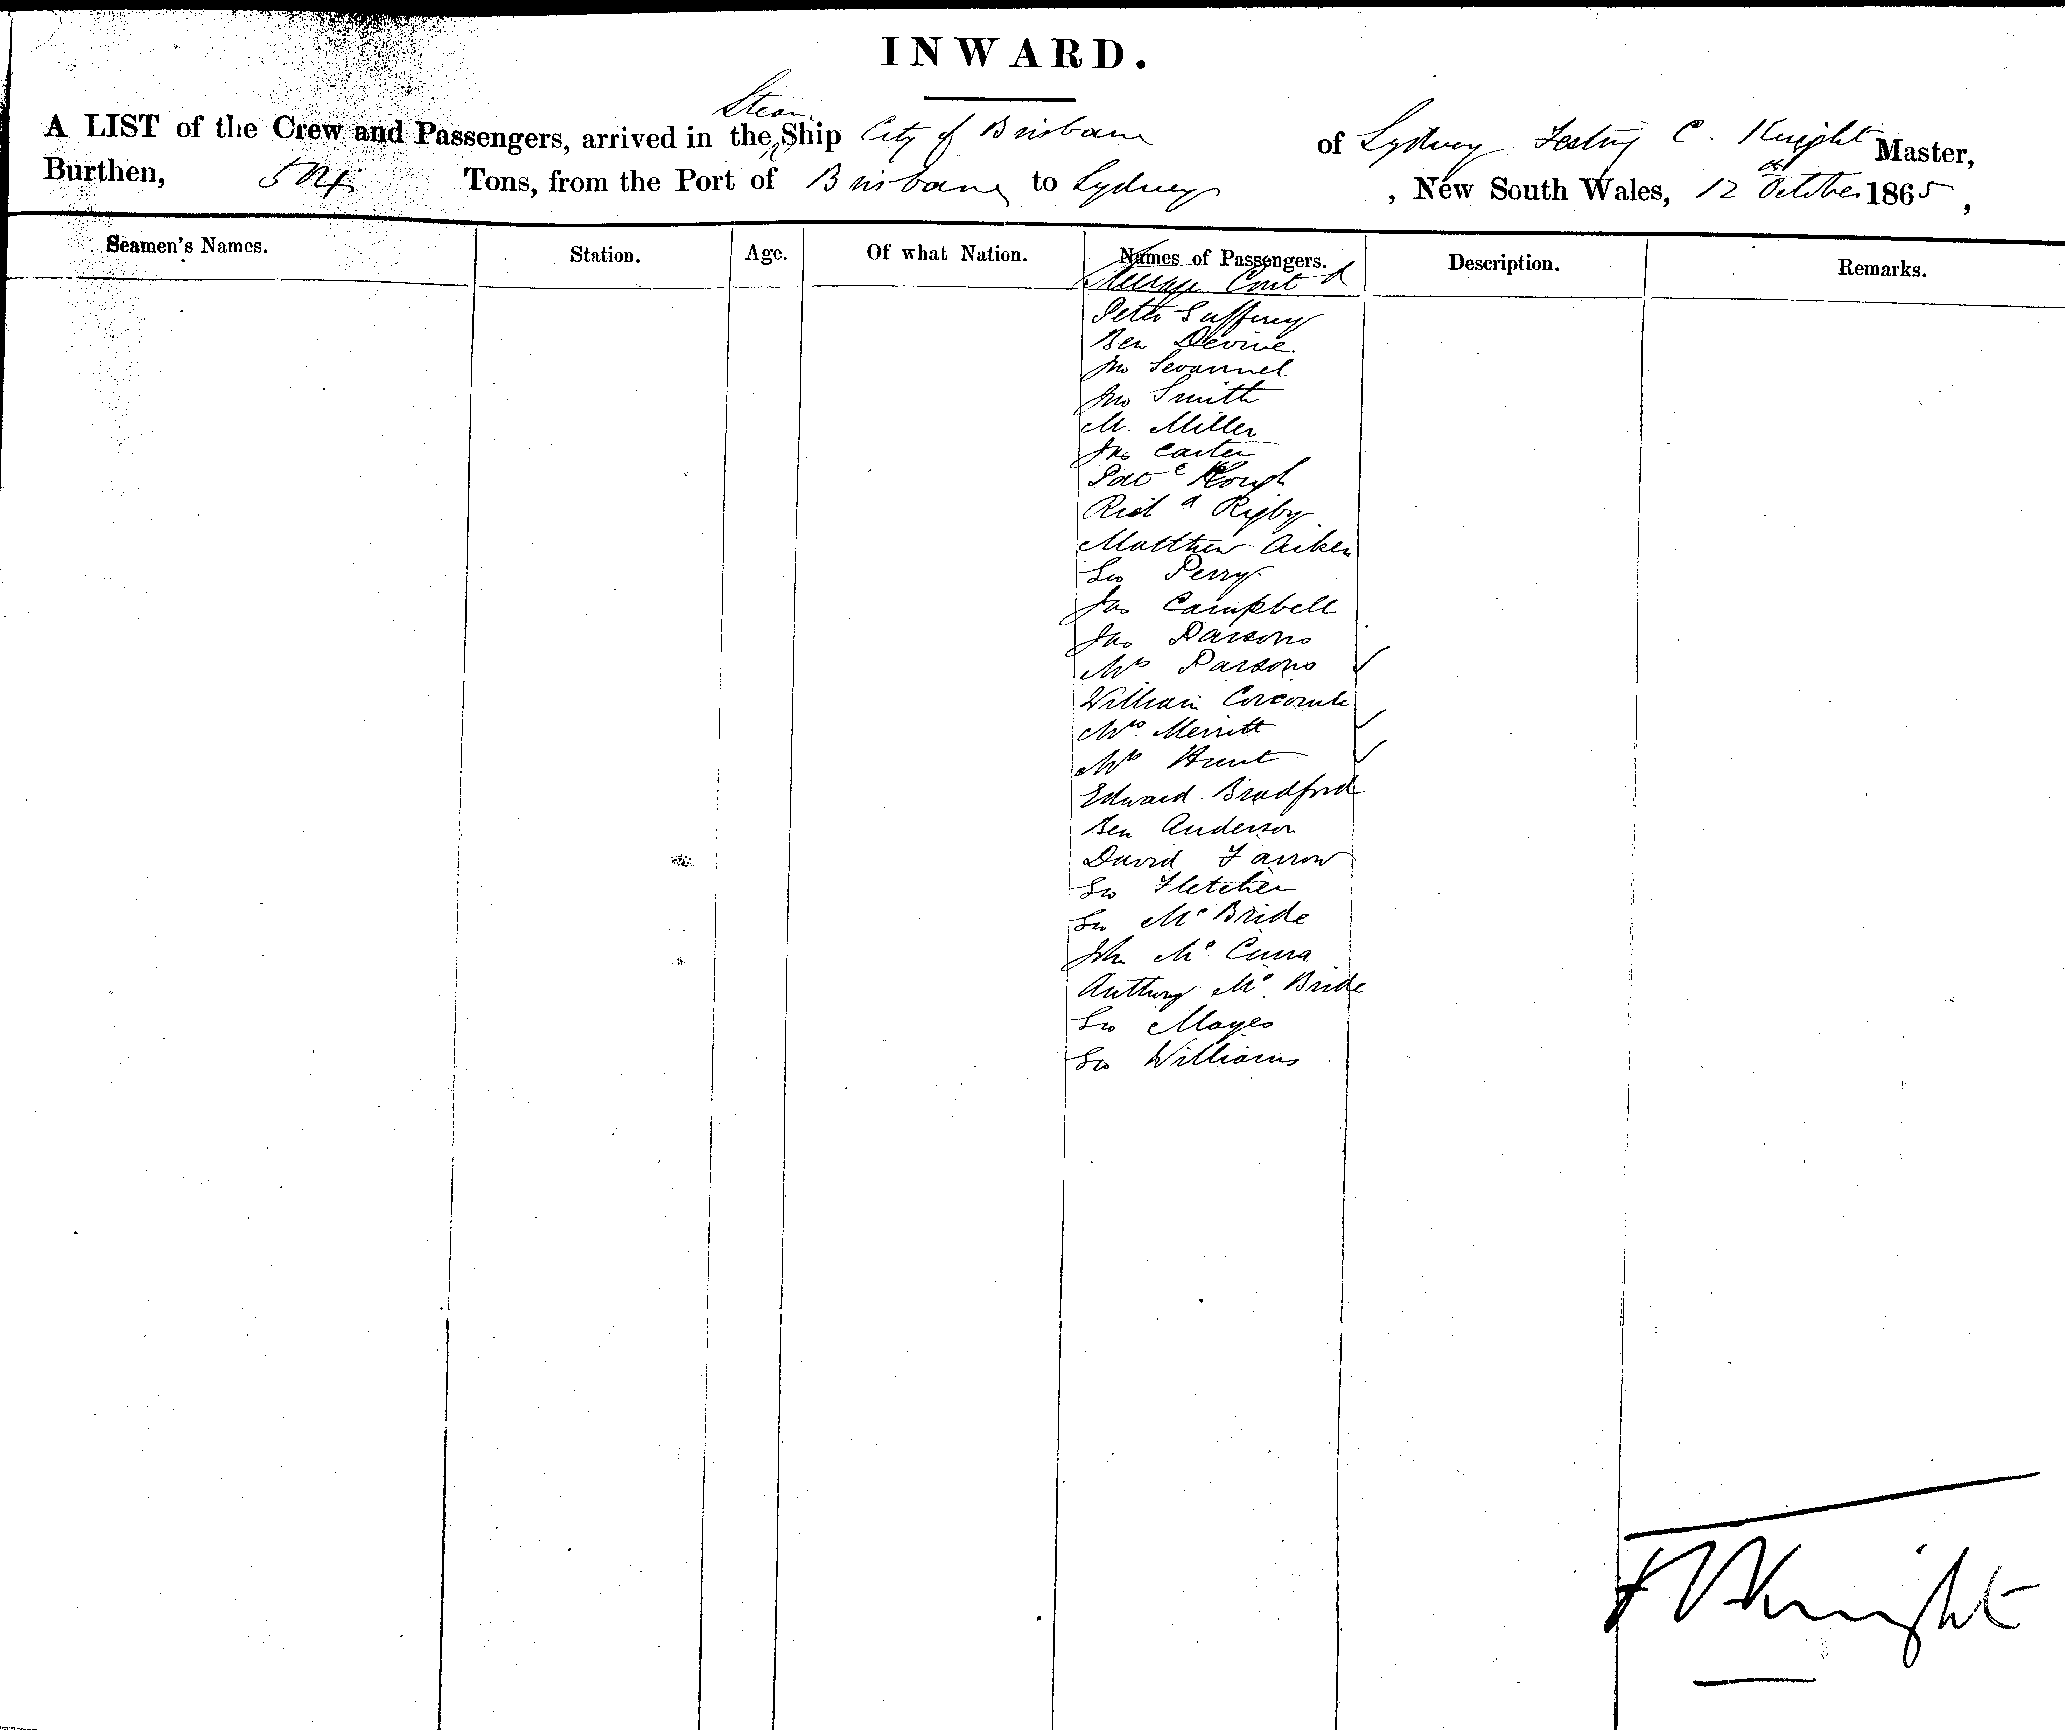 INWARD.
Steam
A LIST of the Crew and Passengers, arrived in the Ship City of Brisbane of Sydney C. Knight Master,
Burthen, 504 Tons, from the Port of Brisbane to Sydney, New South Wales, 12th October 1865,
Seamen's Names. Station. Age. Of what Nation. Names of Passengers. Description. Remarks.
Steerage Cont d
Peter
Ben Devine
Jno
Jno Smith
M. Miller
Jas Carter
Rich d Rigby
Matthew Aiken
Geo Perry
Jas Campbell
Jas Parsons
Mrs Parsons ✓
William
Mrs Merritt ✓
Mrs Hunt ✓
Edward Bradford
Ben Anderson
David Farrow
Geo Fletcher
Geo McBride
John Mc
Anthony McBride
Geo Mayes
Geo Williams
Knight